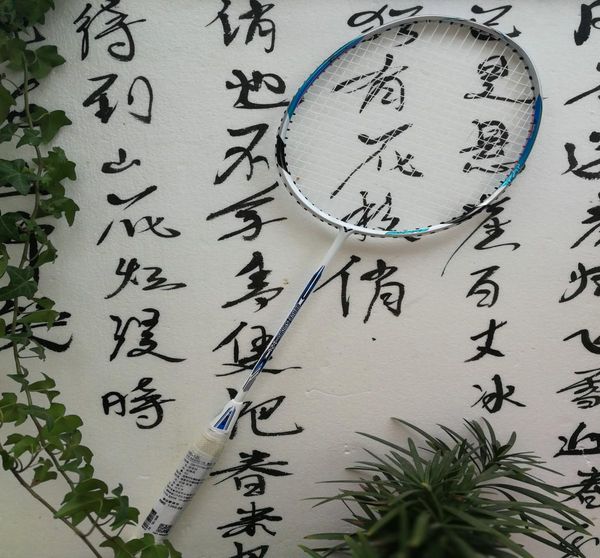 风雨送春归飞雪迎春
已是悬崖百丈冰
犹有花枝俏
俏也不争春只把春来
待到山花烂漫时